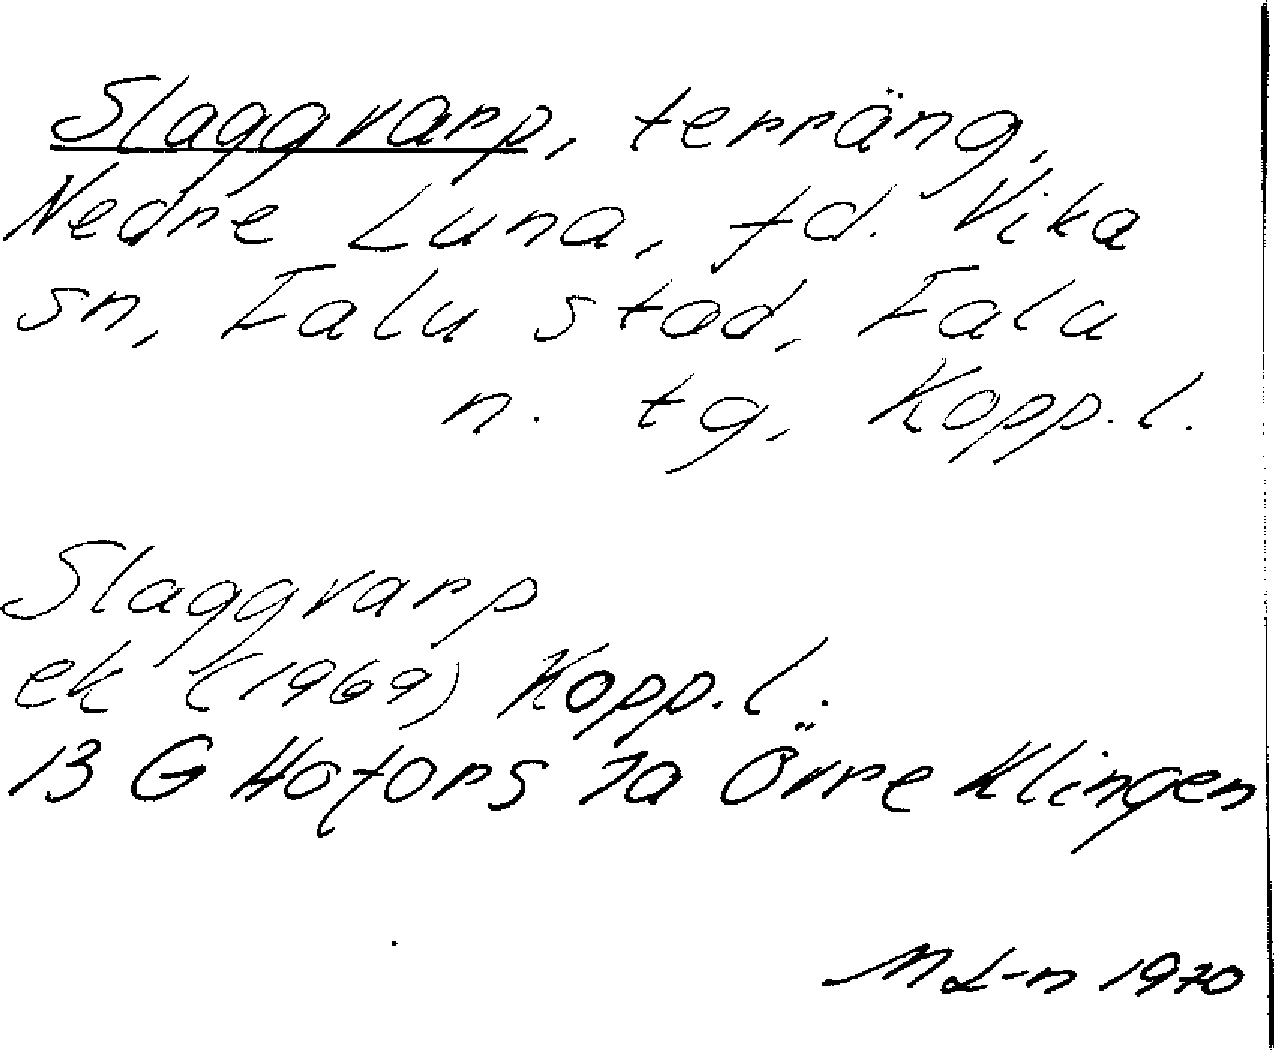 Slaggvarp, terräng,
Nedre Luna, f d. Vika
sn, Falu stad, Falu
n. tg, Kopp. l.
Slaggvarp
ek (1969) Kopp. l.
13 G Hofors 7a Övre Klingen
M L-n 1970